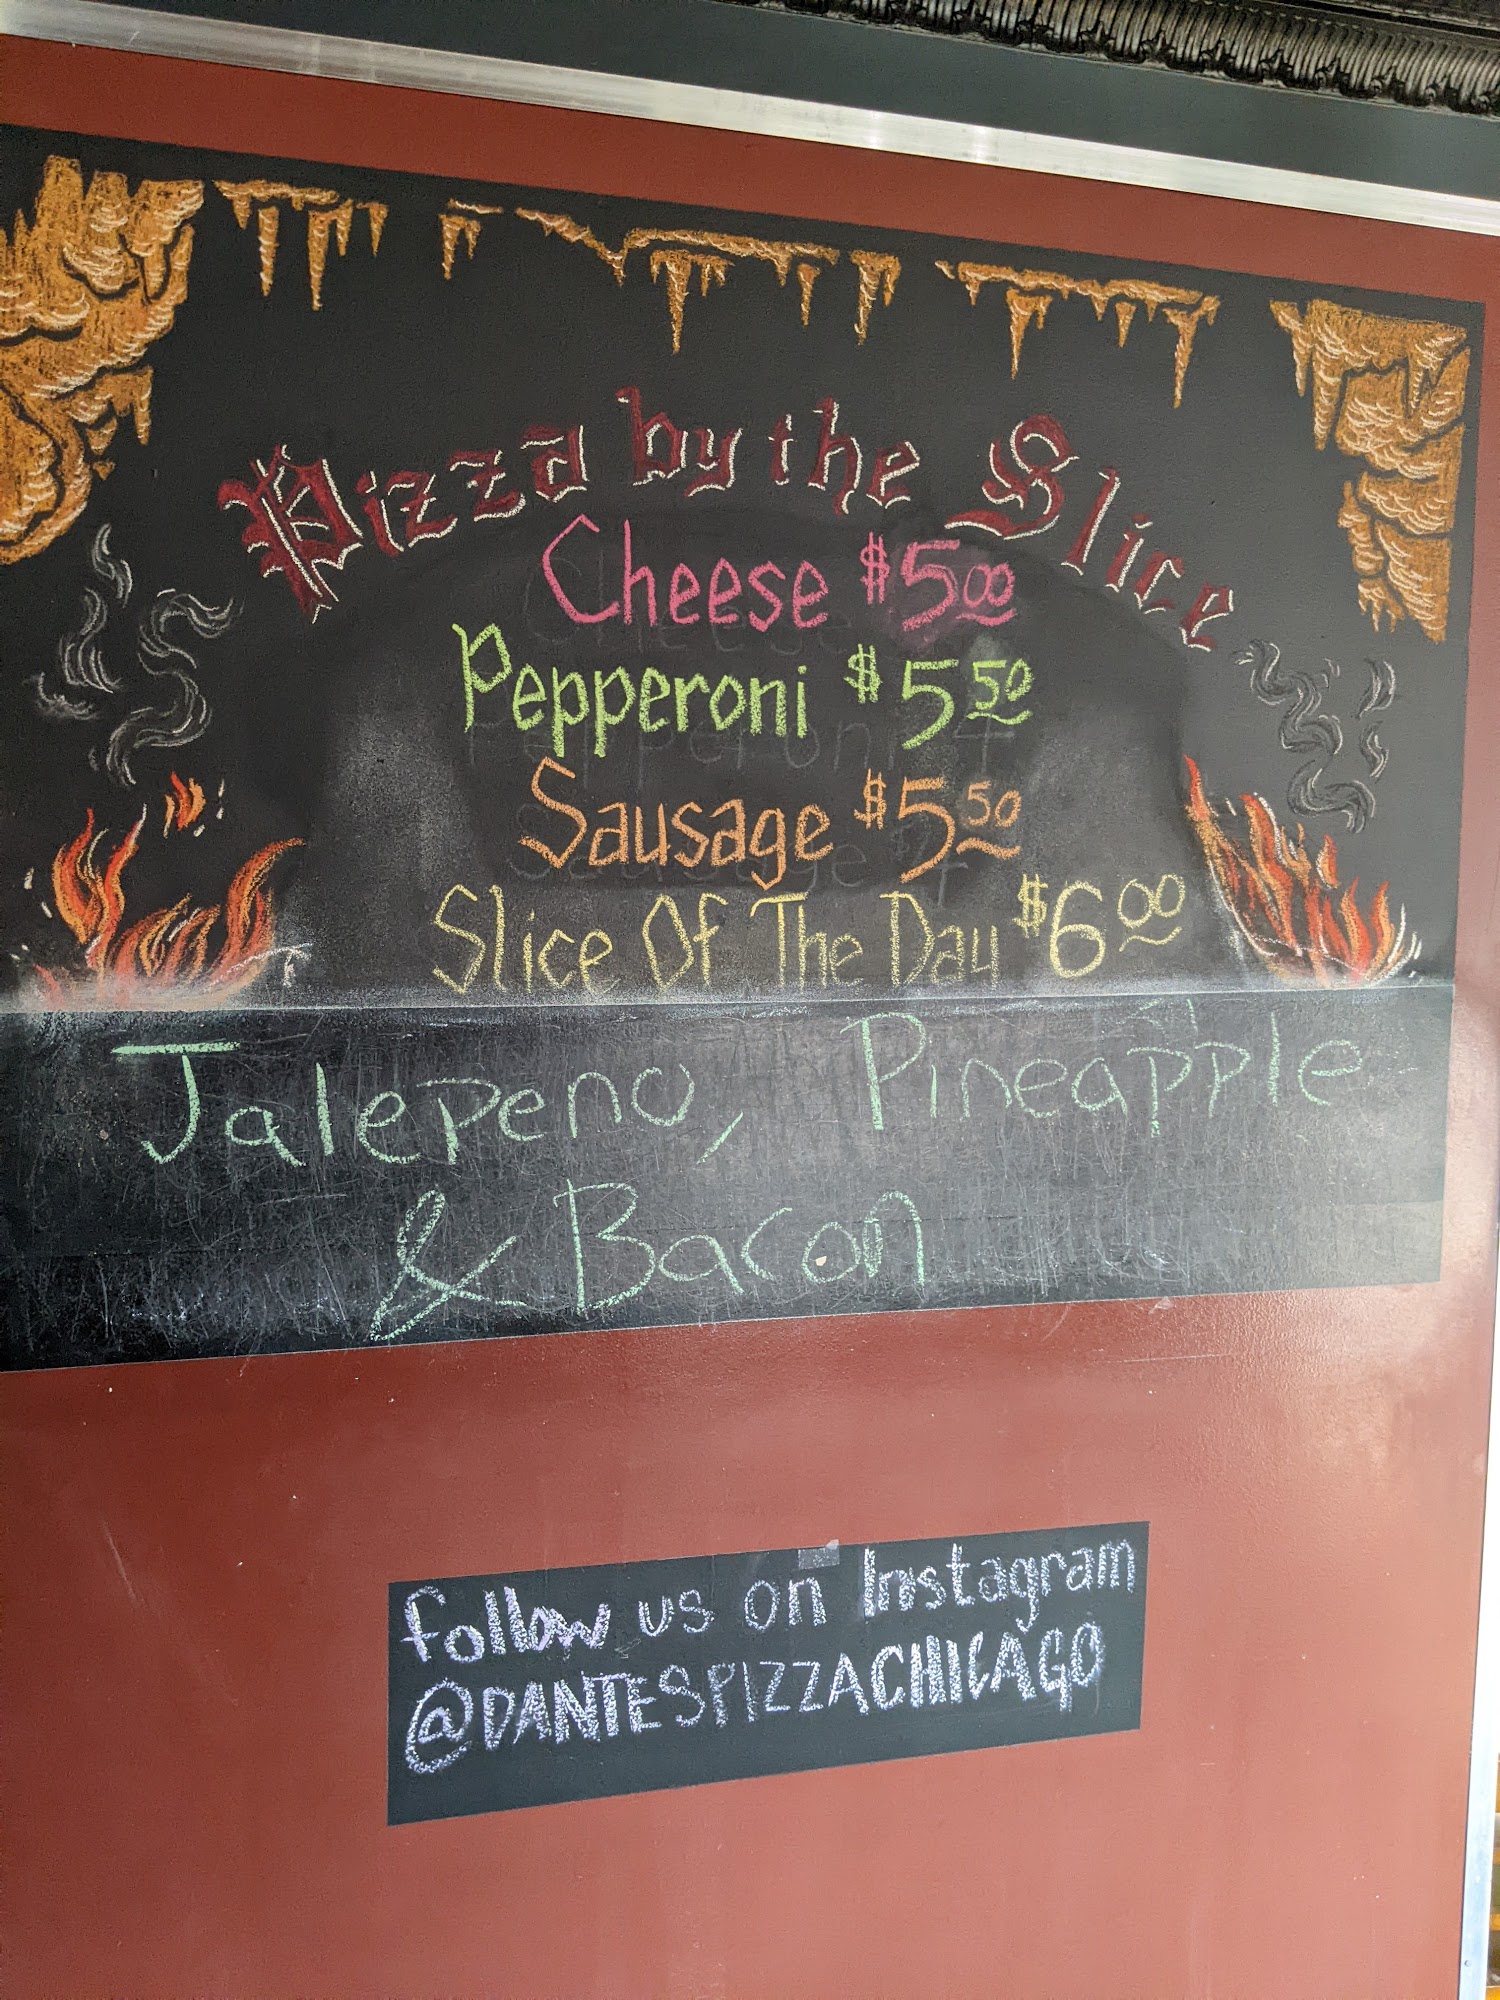 Pizza by the Slice
Cheese $5.00
Pepperoni $5.50
Sausage $5.50
Slice Of The Day $6.00
Jalepeno, Pineapple
& Bacon
Follow us on Instagram
@DANTESPIZZACHICAGO